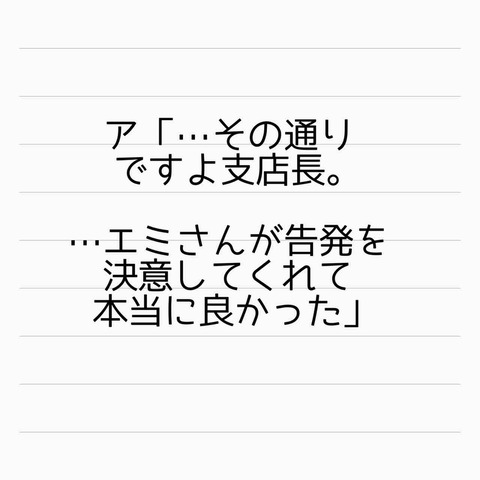 ア「…その通り
ですよ支店長。
…エミさんが告発を
決意してくれて
本当に良かった」